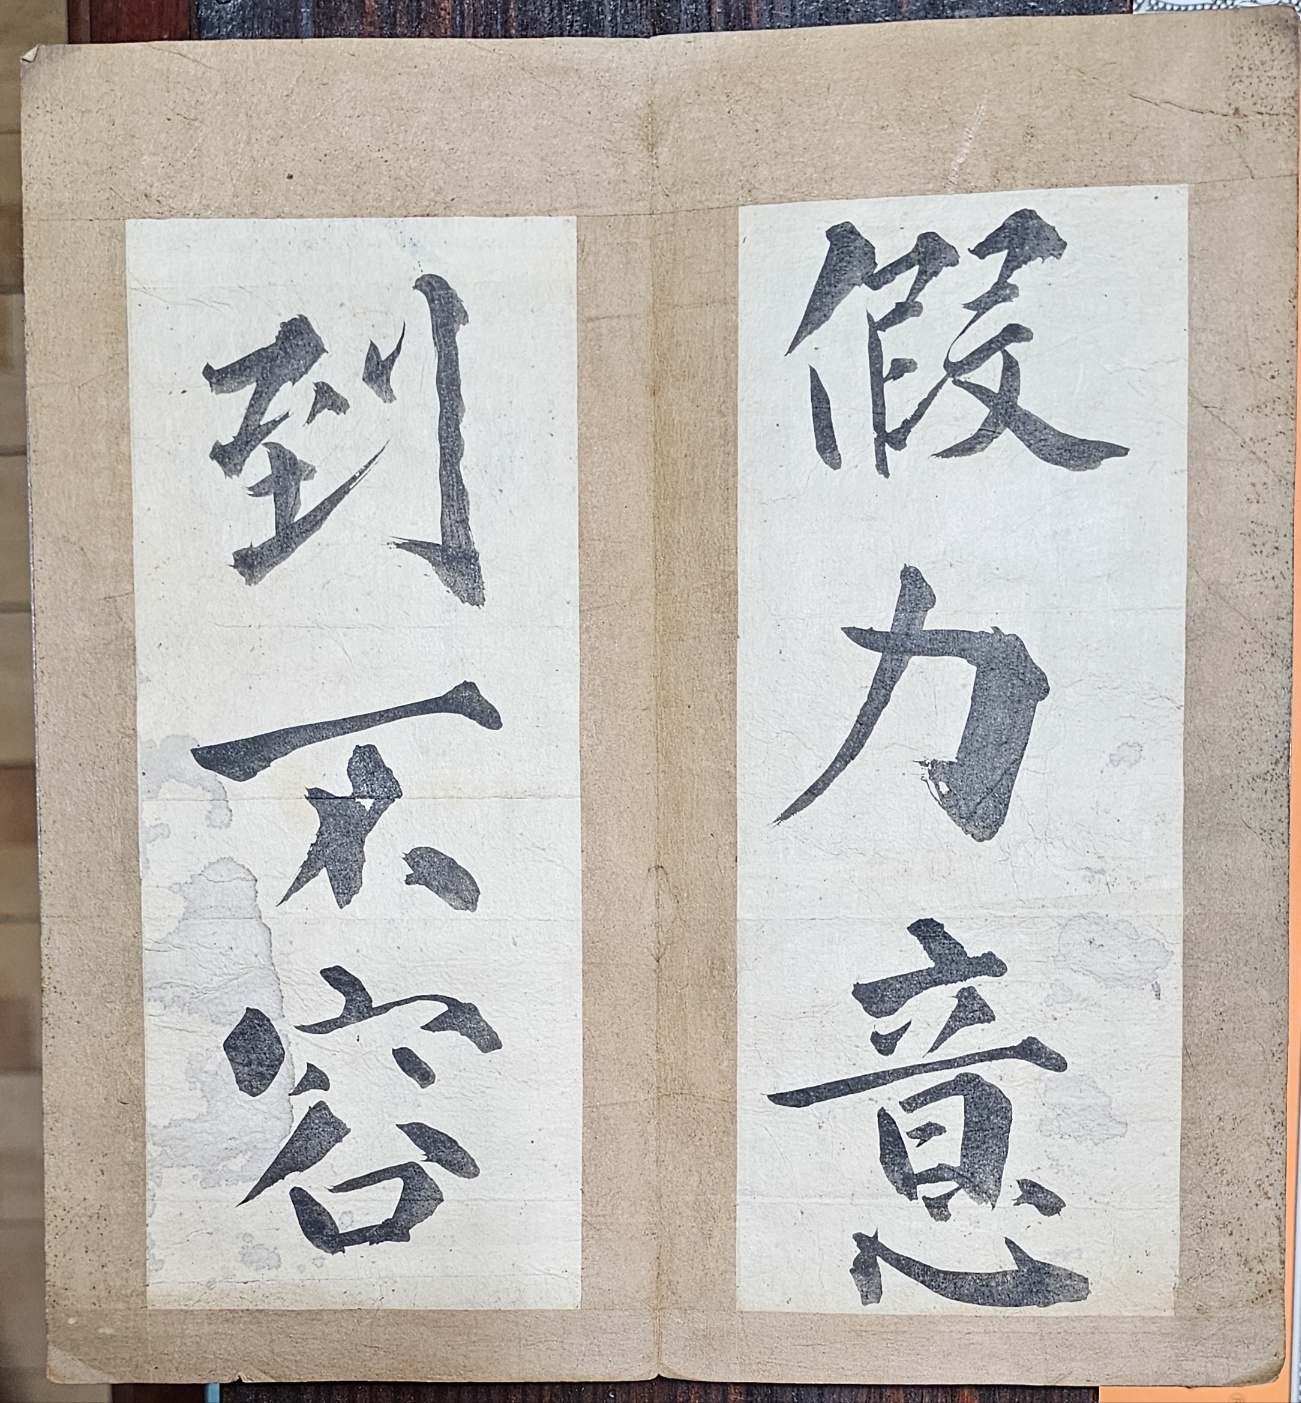 假力意
到不容